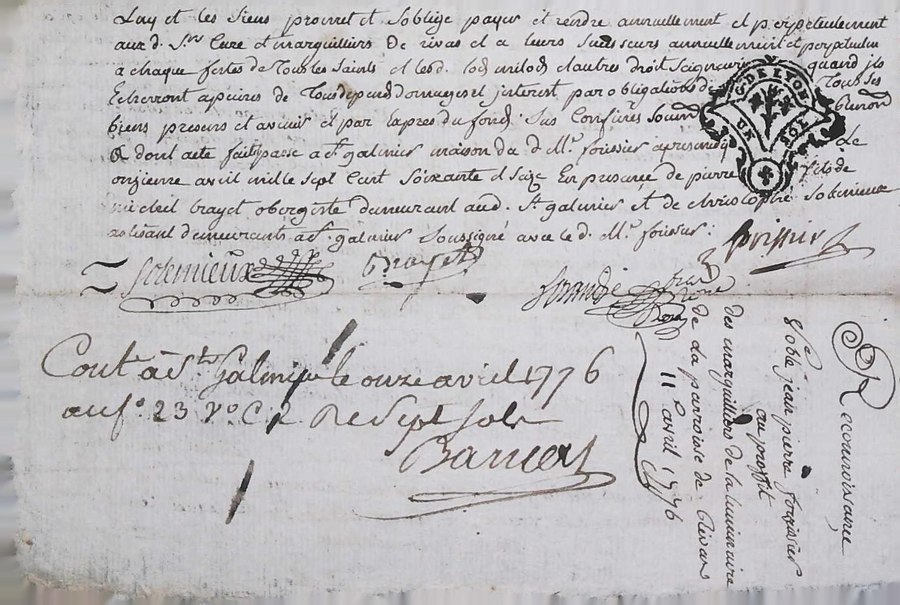 Luy et les siens promet et s'oblige payer et rendre annuellement et perpetuelement
aux d. Srs Curé et marguilliers De rivas et a leurs successeurs annuellement et perpetuelm
a chaque festes de Tous les saints et lesd. lods milods et autres droit seigneuriaux quand ils
Echerront a peines de Tous depens dommages et interest par obligations de Tous ses
biens presents et avenir et par Exprès du fond. Sus Confinés soum
& dont acte fait passé a St. galmier maison du d. Me. foissier apres midy Le
onzieme avril mille sept Cent soixante et seize En presence de pierre fils de
michel brayet obergiste demeurant aud. St galmier et de christophe solemieux
artisant demeurants a St. galmier soussigné avec le d. Me. foissier.
G. DE LYON
Solemieux
Brayet
foissier
Cont. à St. Galmier le onze avril 1776
au fo. 23 Vo. C. 2 Re Sept sols
Barrieu
Reconnoissance
Noble jean pierre foissier
au proffit
des marguilliers de la luminaire
de la parroisse de Rivas
11 avril 1776